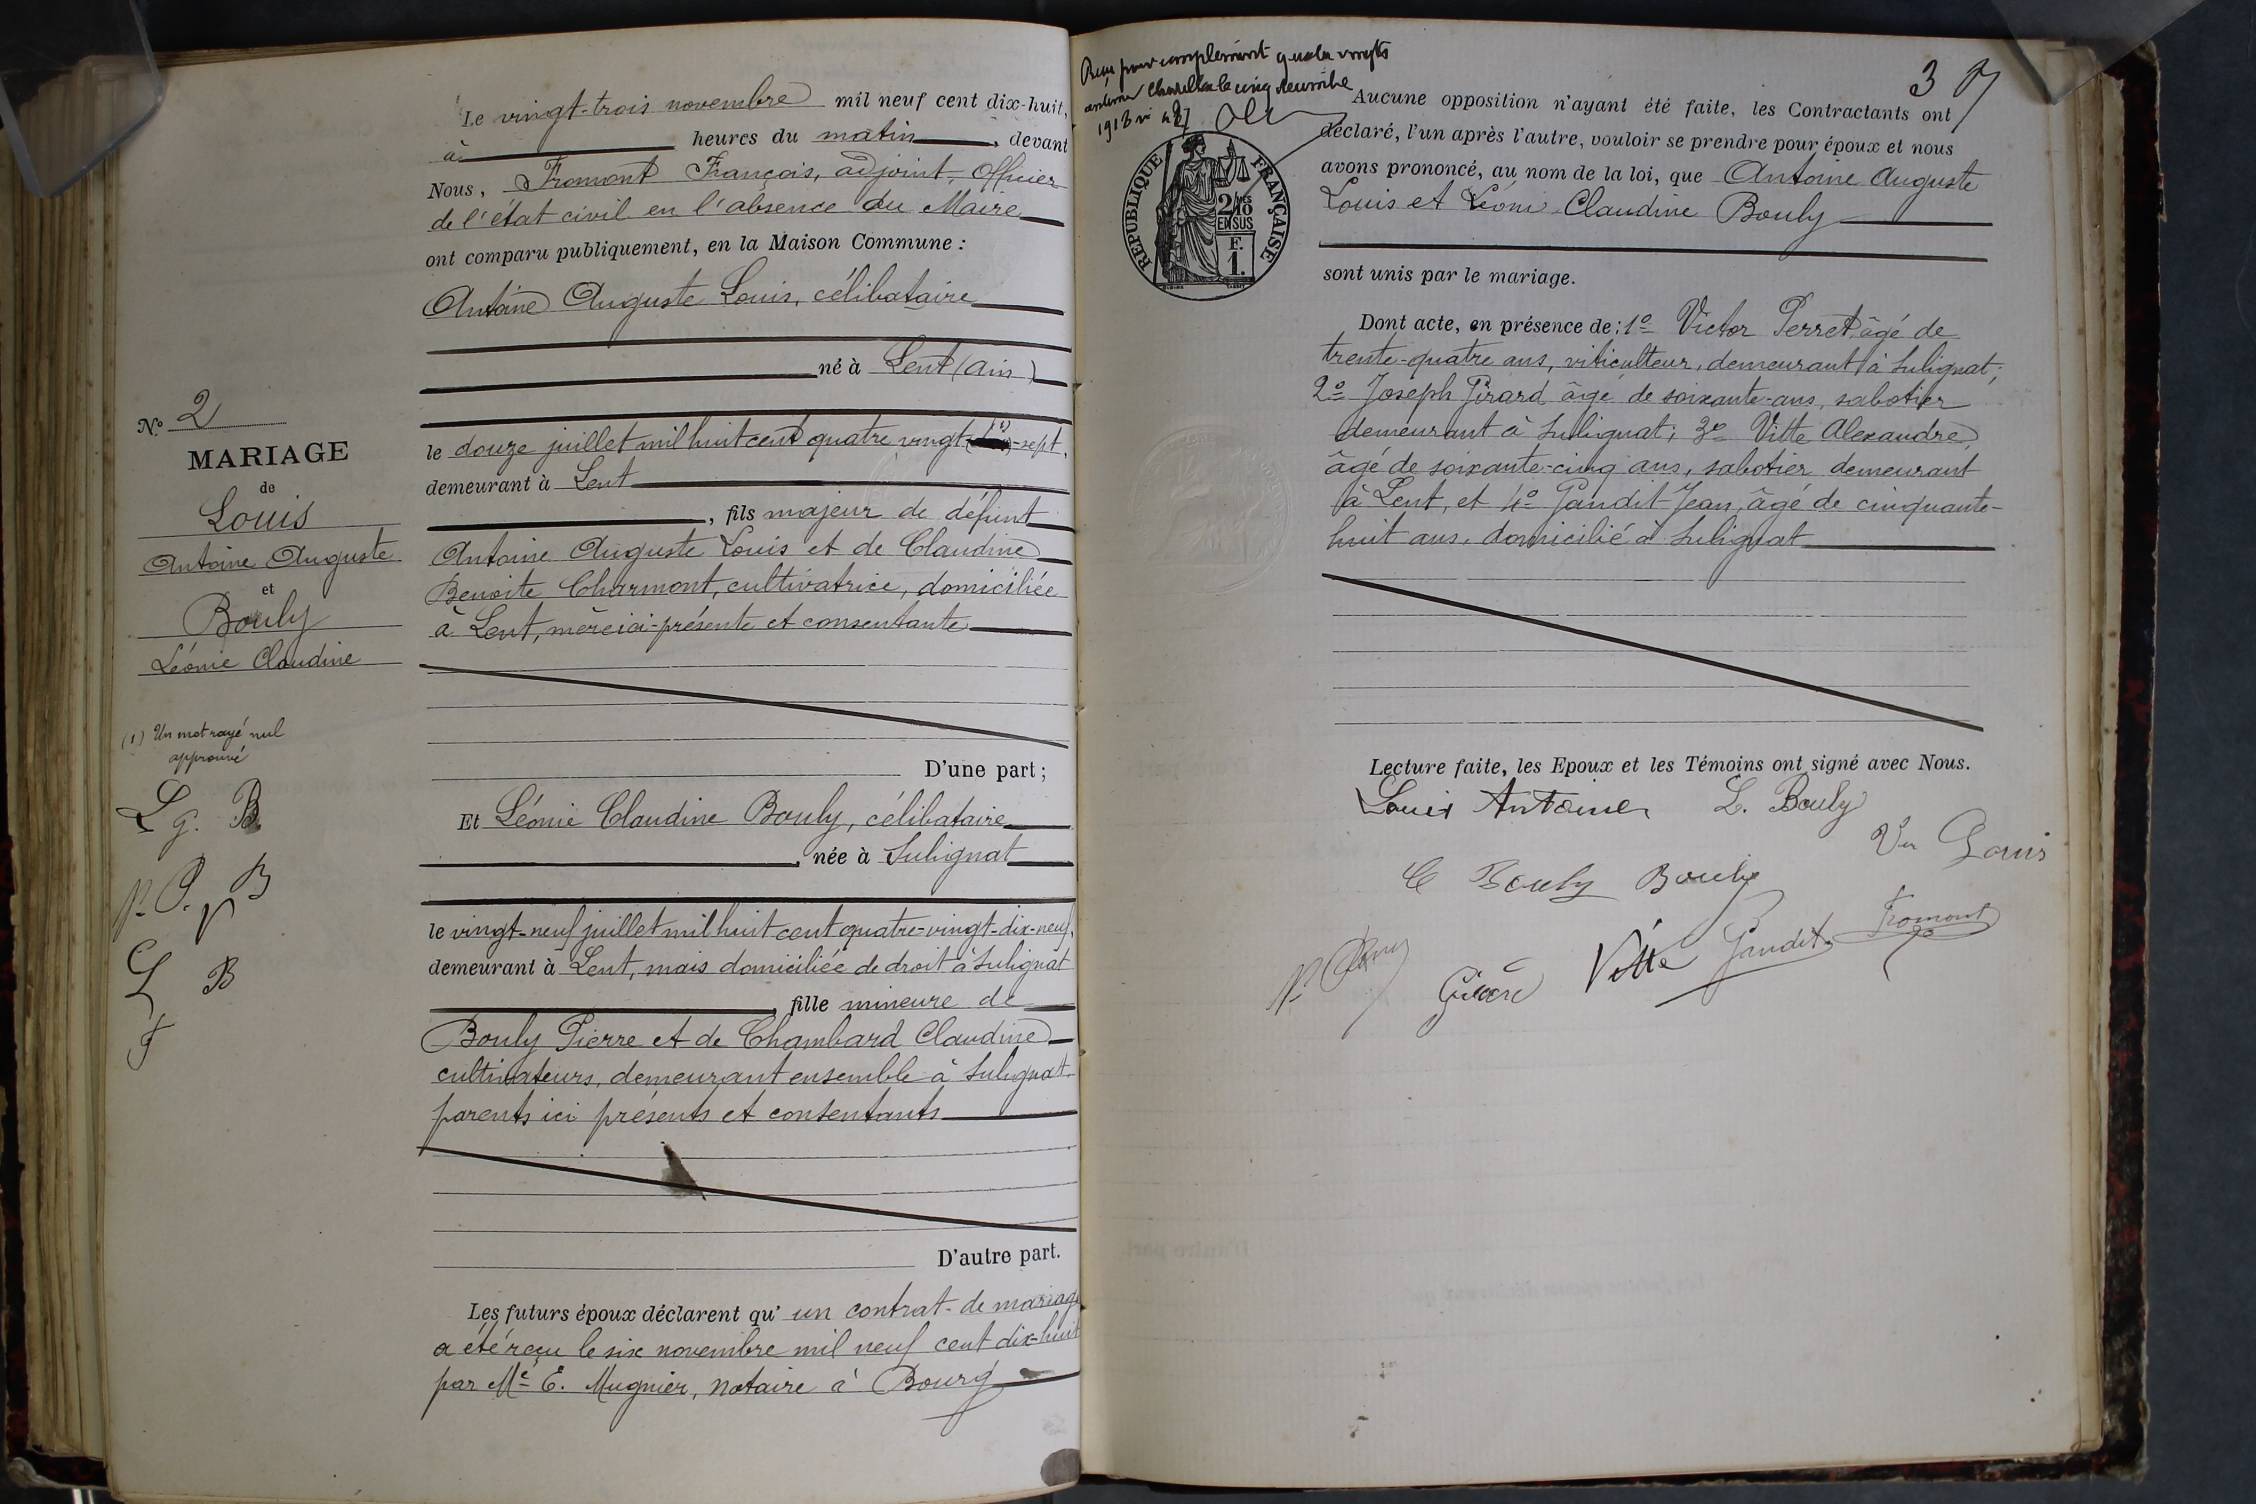 Le vingt-trois novembre mil neuf cent dix-huit,
à heures du matin, devant
Nous, Fromont François, adjoint, Officier
de l'état civil en l'absence du Maire
ont comparu publiquement, en la Maison Commune :
Antoine Auguste Louis, célibataire
né à Lent (Ain)
le douze juillet mil huit cent quatre vingt (1)-sept,
demeurant à Lent
, fils majeur de défunt
Antoine Auguste Louis et de Claudine
Benoite Charmont, cultivatrice, domiciliée
à Lent, mère ici-présente et consentante
D'une part ;
Et Léonie Claudine Bouly, célibataire
, née à Sulignat
le vingt-neuf juillet mil huit cent quatre-vingt-dix-neuf,
demeurant à Lent, mais domiciliée de droit à Sulignat
, fille mineure de
Bouly Pierre et de Chambard Claudine
cultivateurs, demeurant ensemble à Sulignat
parents ici présents et consentants
D'autre part.
Les futurs époux déclarent qu' un contrat de mariage
a été reçu le six novembre mil neuf cent dix-huit
par Me E. Mugnier, notaire à Bourg
N.° 2
MARIAGE
de
Louis
Antoine Auguste
et
Bouly
Léonie Claudine
(1) Un mot rayé nul
approuvé
L B
g.
P. B
V
L B
F
37
pour complément
le cinq
RÉPUBLIQUE FRANÇAISE
2/10
EN SUS
F.
1.
Aucune opposition n'ayant été faite, les Contractants ont
déclaré, l'un après l'autre, vouloir se prendre pour époux et nous
avons prononcé, au nom de la loi, que Antoine Auguste
Louis et Léonie Claudine Bouly
sont unis par le mariage.
Dont acte, en présence de : 1° Victor Perret, âgé de
trente-quatre ans, viticulteur, demeurant à Sulignat ;
2° Joseph Girard âgé de soixante-ans, sabotier
demeurant à Sulignat ; 3° Vitte Alexandre
âgé de soixante-cinq ans, sabotier demeurant
à Lent, et 4° Gandit Jean, âgé de cinquante-
huit ans, domicilié à Sulignat
Lecture faite, les Epoux et les Témoins ont signé avec Nous.
Louis Antoine L. Bouly
Vve Louis
C Bouly Bouly
Girard Vitte Gandit Fromont